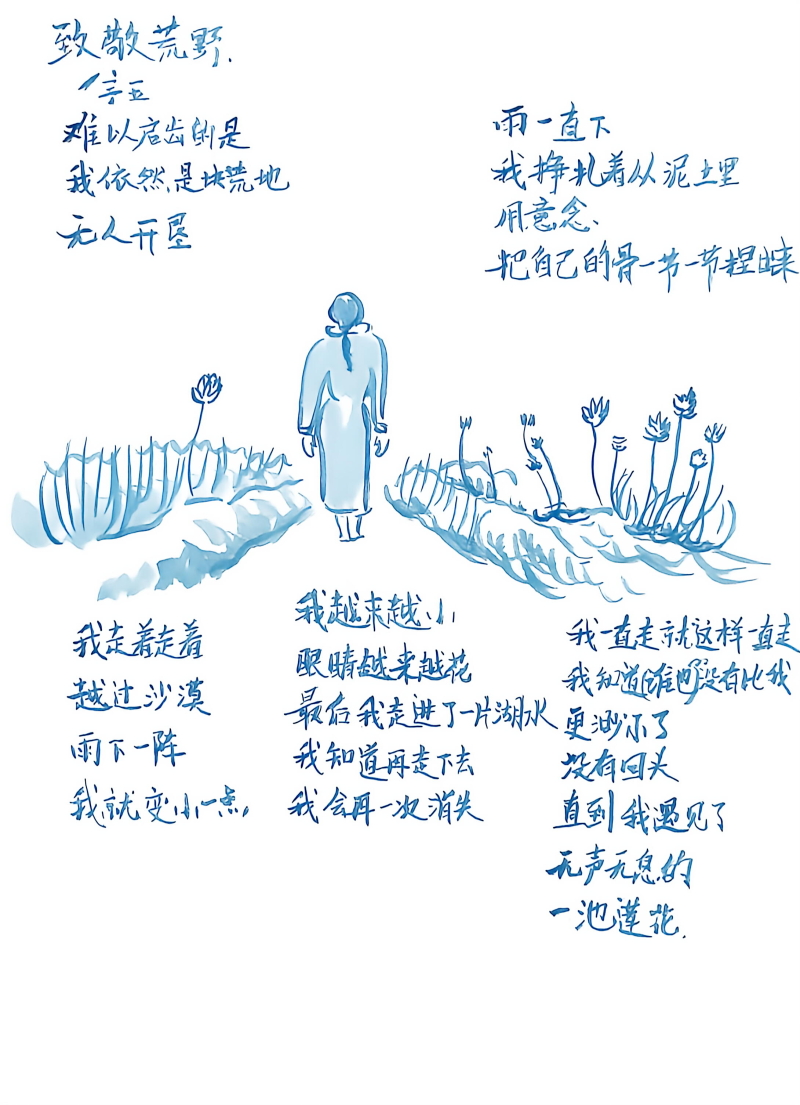 致敬荒野.
信玉
难以启齿的是
我依然是块荒地
无人开垦
雨一直下
我挣扎着从泥土里
用意念、
把自己的骨一节一节捏出来
我走着走着
越过沙漠
雨下一阵
我就变小一点,
我越来越小,
眼睛越来越花
最后我走进了一片湖水
我知道再走下去
我会再一次消失
我一直走就这样一直走
我知道谁也没有比我
更渺小了
没有回头
直到我遇见了
无声无息的
一池莲花.